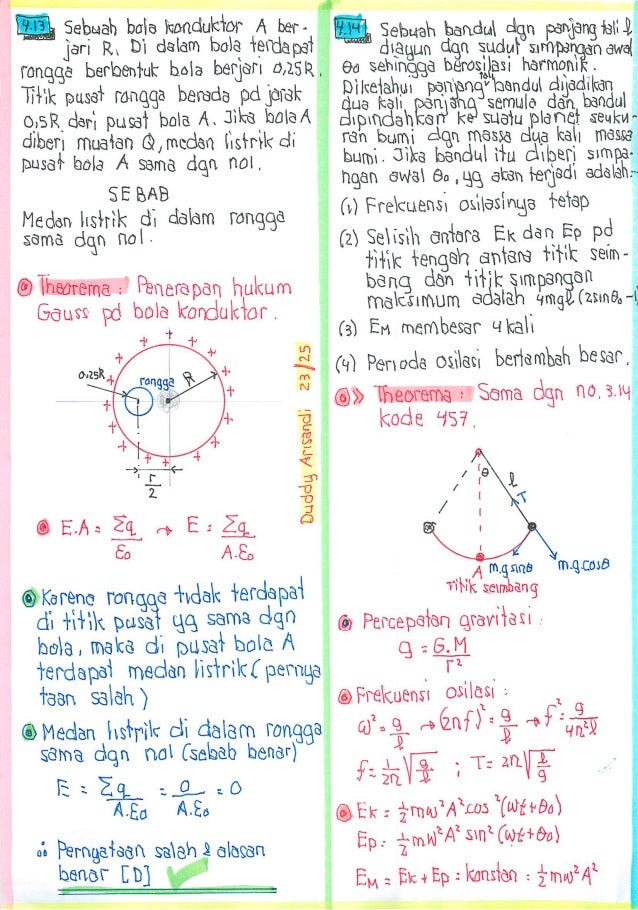 4.13 Sebuah bola konduktor A ber-
jari R. Di dalam bola terdapat
rongga berbentuk bola berjari 0,25R.
Titik pusat rongga berada pd jarak
0,5R dari pusat bola A. Jika bola A
diberi muatan Q, medan listrik di
pusat bola A sama dgn nol.
SEBAB
Medan listrik di dalam rongga
sama dgn nol.
Theorema : Penerapan hukum
Gauss pd bola konduktor.
0,25R
rongga
R
r/2
E.A = Σq/ε₀ → E = Σq/A.ε₀
Karena rongga tidak terdapat
di titik pusat yg sama dgn
bola, maka di pusat bola A
terdapat medan listrik (pernya
taan salah)
Medan listrik di dalam rongga
sama dgn nol (sebab benar)
E = Σq/A.ε₀ = 0/A.ε₀ = 0
∴ Pernyataan salah & alasan
benar [D]
Duddy Arisandi 23/25
4.14 Sebuah bandul dgn panjang tali l
diayun dgn sudut simpangan awal
θ₀ sehingga berosilasi harmonik.
Diketahui panjang tali bandul dijadikan
dua kali panjang semula dan bandul
dipindahkan ke suatu planet seuku-
ran bumi dgn massa dua kali massa
bumi. Jika bandul itu diberi simpa-
ngan awal θ₀, yg akan terjadi adalah:
(1) Frekuensi osilasinya tetap
(2) Selisih antara Ek dan Ep pd
titik tengah antara titik seim-
bang dan titik simpangan
maksimum adalah 4mgl (2sinθ₀ -1
(3) EM membesar 4 kali
(4) Perioda osilasi bertambah besar.
Theorema : Sama dgn no. 3.14
kode 457.
θ
l
T
A
m.g sinθ
m.g.cosθ
Titik seimbang
Percepatan gravitasi :
g = G.M/r²
Frekuensi osilasi :
ω² = g/l → (2πf)² = g/l → f² = g/4π²l
f = 1/2π √g/l ; T = 2π√l/g
Ek = ½mω²A²cos²(ωt+θ₀)
Ep = ½mω²A² sin²(ωt+θ₀)
EM = Ek + Ep = konstan = ½mω²A²